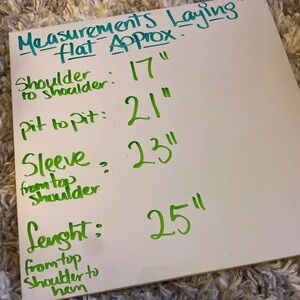 Measurements Laying
flat Approx.
Shoulder
to shoulder: 17"
pit to pit: 21"
Sleeve
from top
shoulder : 23"
Lenght: 25"
from top
shoulder to
hem